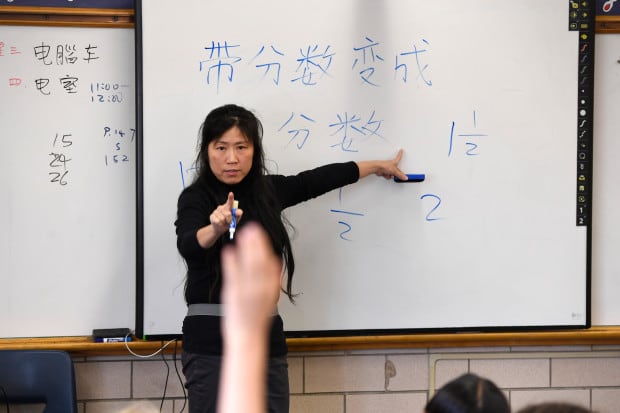 三 电脑车
四 电室 11:00-
12:00
15
24
26
P.147
5
152
带分数变成
分数 1 1/2
1/2 2